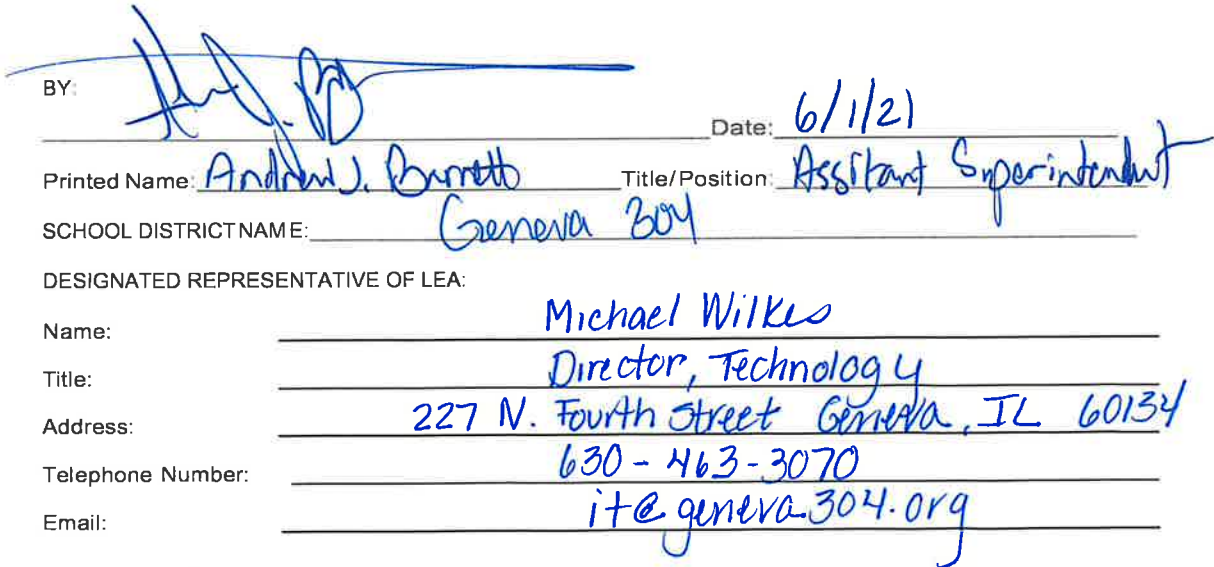 BY:
Date: 6/1/21
Printed Name: Andrew J. Barrett Title/Position: Assitant Superintendent
SCHOOL DISTRICT NAME: Geneva 304
DESIGNATED REPRESENTATIVE OF LEA:
Name: Michael Wilkes
Title: Director, Technology
Address: 227 N. Fourth Street Geneva, IL 60134
Telephone Number: 630-463-3070
Email: it@geneva304.org